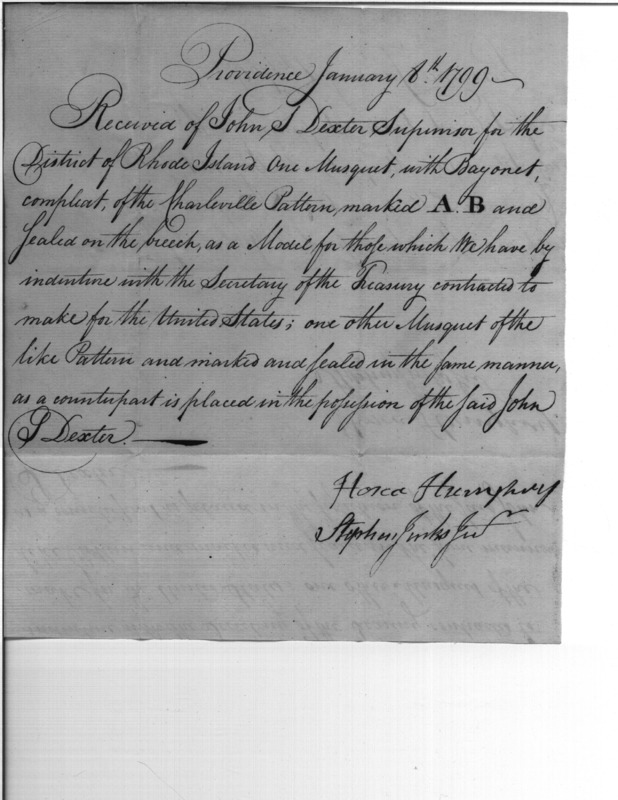 Providence January 8th 1799
Received of John S Dexter Supervisor for the
District of Rhode Island One Musquet, with Bayonet,
compleat, of the Charleville Pattern, marked A.B and
sealed on the breech, as a Model for those which We have by
indenture with the Secretary of the Treasury contracted to
make for the United States; one other Musquet of the
like Pattern and marked and sealed in the same manner,
as a counterpart is placed in the possession of the said John
S Dexter.
Hosea Humphrey
Stephen Jenks Junr